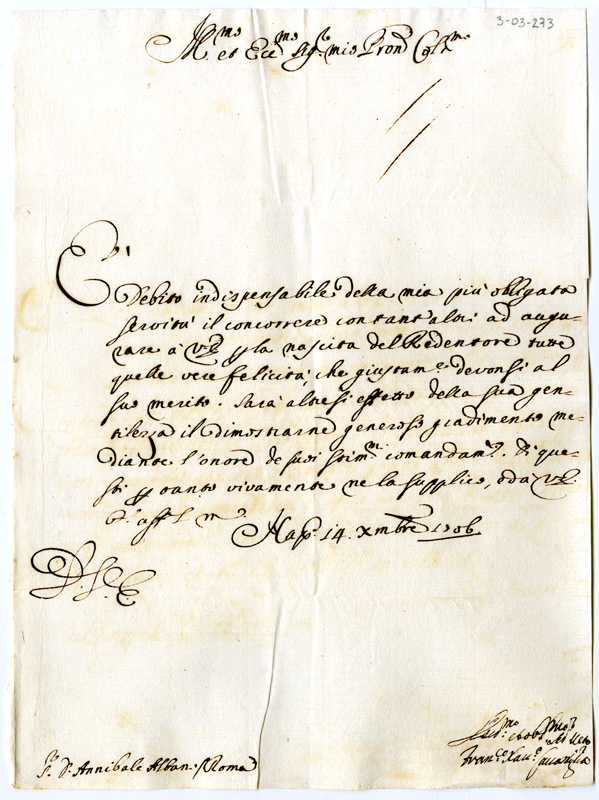 3-03-273
Ill.mo et Ecc.mo Sig.r mio Pron Col.mo
E'
Debito indispensabile della mia più obligata
servitù il concorrere con tant'altri ad augu-
rare à VE p la nascita del Redentore tutte
quelle vere felicità, che giustam.e devonsi al
suo merito. Sarà altresi effetto della sua gen-
tilezza il dimostrarne generoso gradimento me-
diante l'onore de suoi stim.mi comandam.ti. Di que-
sti p tanto vivamente ne la supplico, e da VE
Nap. 14. Xmbre 1706
D. V. E.
S.r D. Annibale Albani / Roma